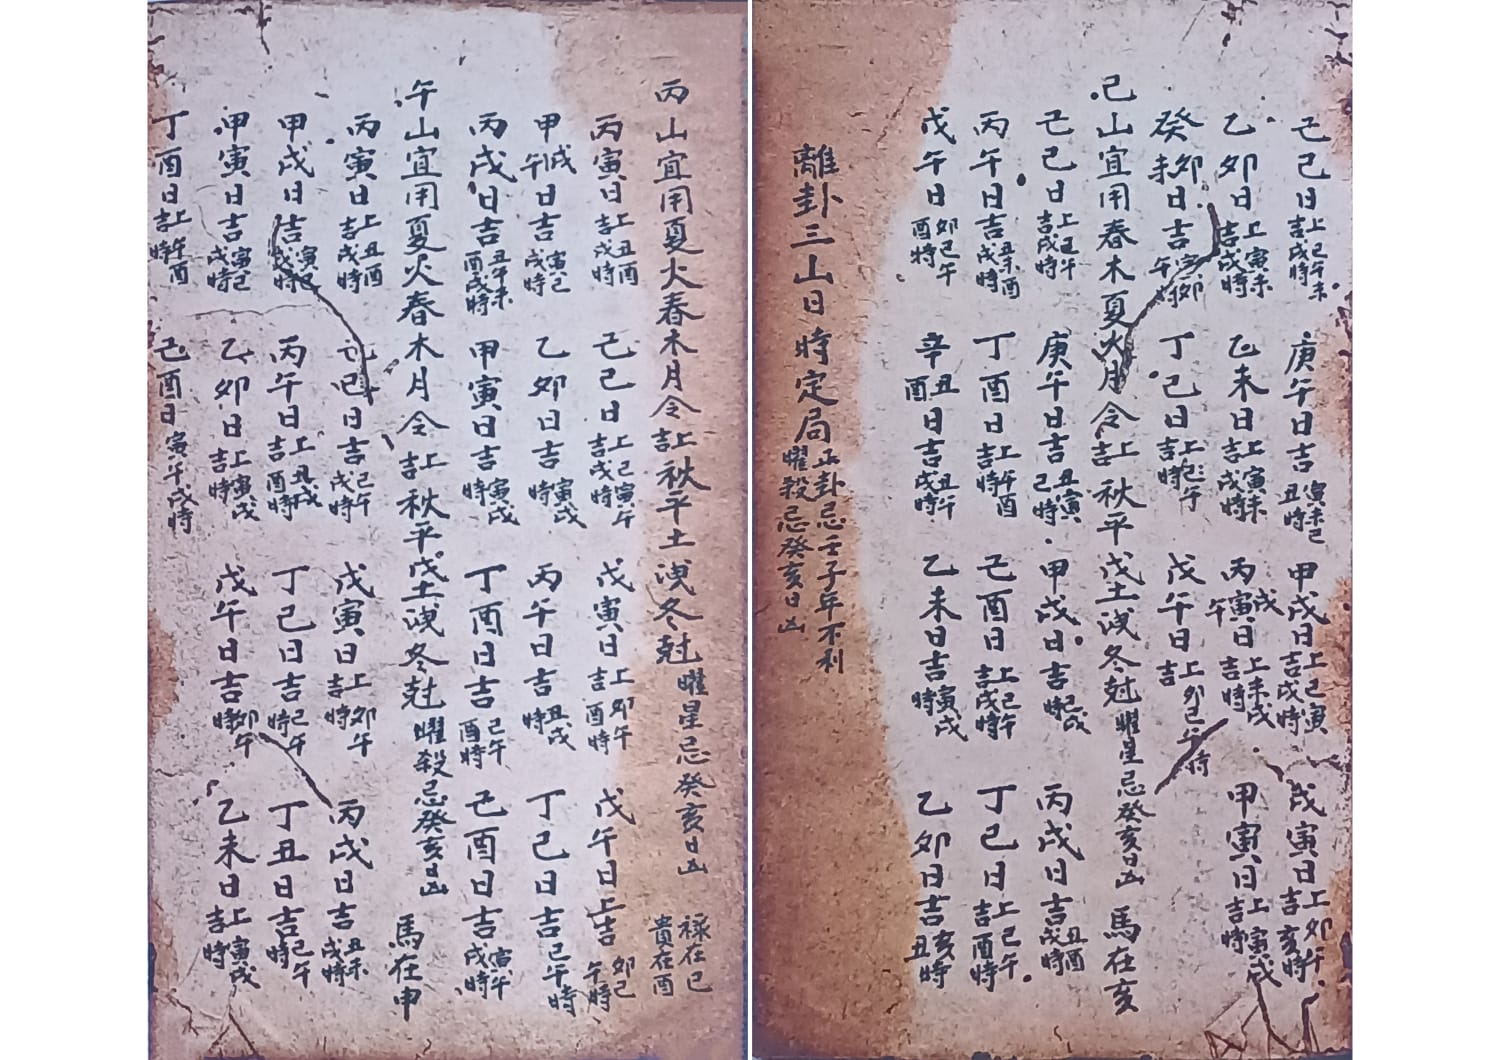 己巳日上吉巳午未戌時 庚午日吉寅未巳丑時 甲戌日上吉巳寅戌時 戊寅日上吉卯午亥時
乙卯日上吉寅未戌時 乙未日上吉寅未戌時 丙寅午戌日上吉未戌時 甲寅日上吉寅戌時
癸卯未日吉寅卯午時 丁巳日上吉巳午時 戊午日上吉卯巳午時
巳山宜用春木夏火月令上吉秋平戊土洩冬尅曜星忌癸亥日凶 馬在亥
己巳日上吉巳午戌時 庚午日吉丑寅巳時 甲戌日吉巳戌時 丙戌日吉丑酉戌時
丙午日吉丑未酉戌時 丁酉日上吉午酉時 己酉日上吉巳午戌時 丁巳日上吉巳午酉時
戊午日卯巳午酉時 辛丑酉日吉丑午戌時 乙未日吉寅戌時 乙卯日吉亥丑時
離卦三山日時定局 正卦忌壬子年不利 曜殺忌癸亥日凶
丙山宜用夏火春木月令上吉秋平土洩冬尅曜星忌癸亥日凶 祿在巳 貴在酉
丙寅日上吉丑酉戌時 己巳日上吉巳寅午戌時 戊寅日上吉卯午酉時 戊午日上吉卯巳午時
甲午戌日吉寅巳戌時 乙卯日吉寅戌時 丙午日吉丑戌時 丁巳日吉巳午時
丙戌日吉丑午未酉戌時 甲寅日吉寅戌時 丁酉日吉巳午酉時 己酉日吉寅午戌時
午山宜用夏火春木月令上吉秋平戊土洩冬尅曜殺忌癸亥日凶 馬在申
丙寅日上吉丑酉戌時 己巳日吉巳午戌時 戊寅日上吉卯午時 丙戌日吉丑未戌時
甲戌日吉寅巳戌時 丙午日上吉丑戌酉時 丁巳日吉巳午時 丁丑日吉巳午時
甲寅日吉寅巳戌時 乙卯日上吉寅戌時 戊午日吉卯午時 乙未日上吉寅戌時
丁酉日上吉午酉時 己酉日寅午戌時